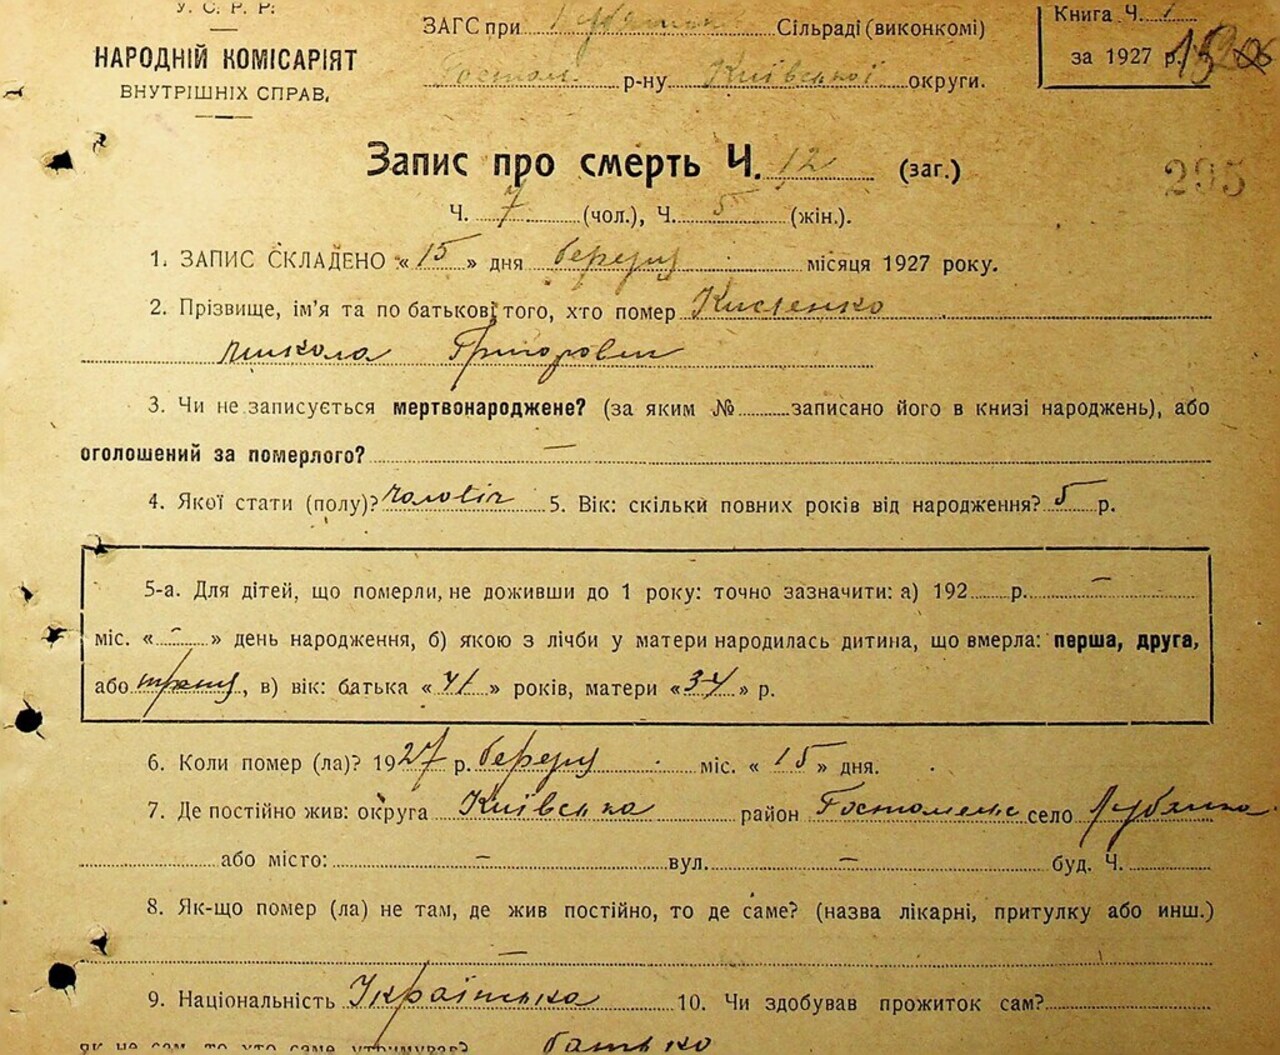 У. С. Р. Р.
НАРОДНІЙ КОМІСАРІЯТ
ВНУТРІШНІХ СПРАВ.
ЗАГС при Сільраді (виконкомі)
Гостом. р-ну Київської округи.
Книга Ч. 1
за 1927 р.
Запис про смерть Ч. 12 (заг.)
295
Ч. 7 (чол.), Ч. 5 (жін.).
1. ЗАПИС СКЛАДЕНО «15» дня березня місяця 1927 року.
2. Прізвище, ім'я та по батькові того, хто помер Кисленко
Микола Григорович
3. Чи не записується мертвонароджене? (за яким № записано його в книзі народжень), або
оголошений за померлого? —
4. Якої стати (полу)? чоловіч 5. Вік: скільки повних років від народження? 5 р.
5-а. Для дітей, що померли, не доживши до 1 року: точно зазначити: а) 192 р. —
міс. «-» день народження, б) якою з лічби у матери народилась дитина, що вмерла: перша, друга,
або третя, в) вік: батька «41» років, матери «34» р.
6. Коли помер (ла)? 1927 р. березня міс. «15» дня.
7. Де постійно жив: округа Київська район Гостомельс село Лубянка
або місто: — вул. — буд. Ч.
8. Як-що помер (ла) не там, де жив постійно, то де саме? (назва лікарні, притулку або инш.)
—
9. Національність Українська 10. Чи здобував прожиток сам?
як не сам, то хто саме утримував? батько